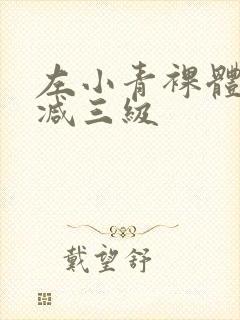 左小青裸體
減三級
戴望舒